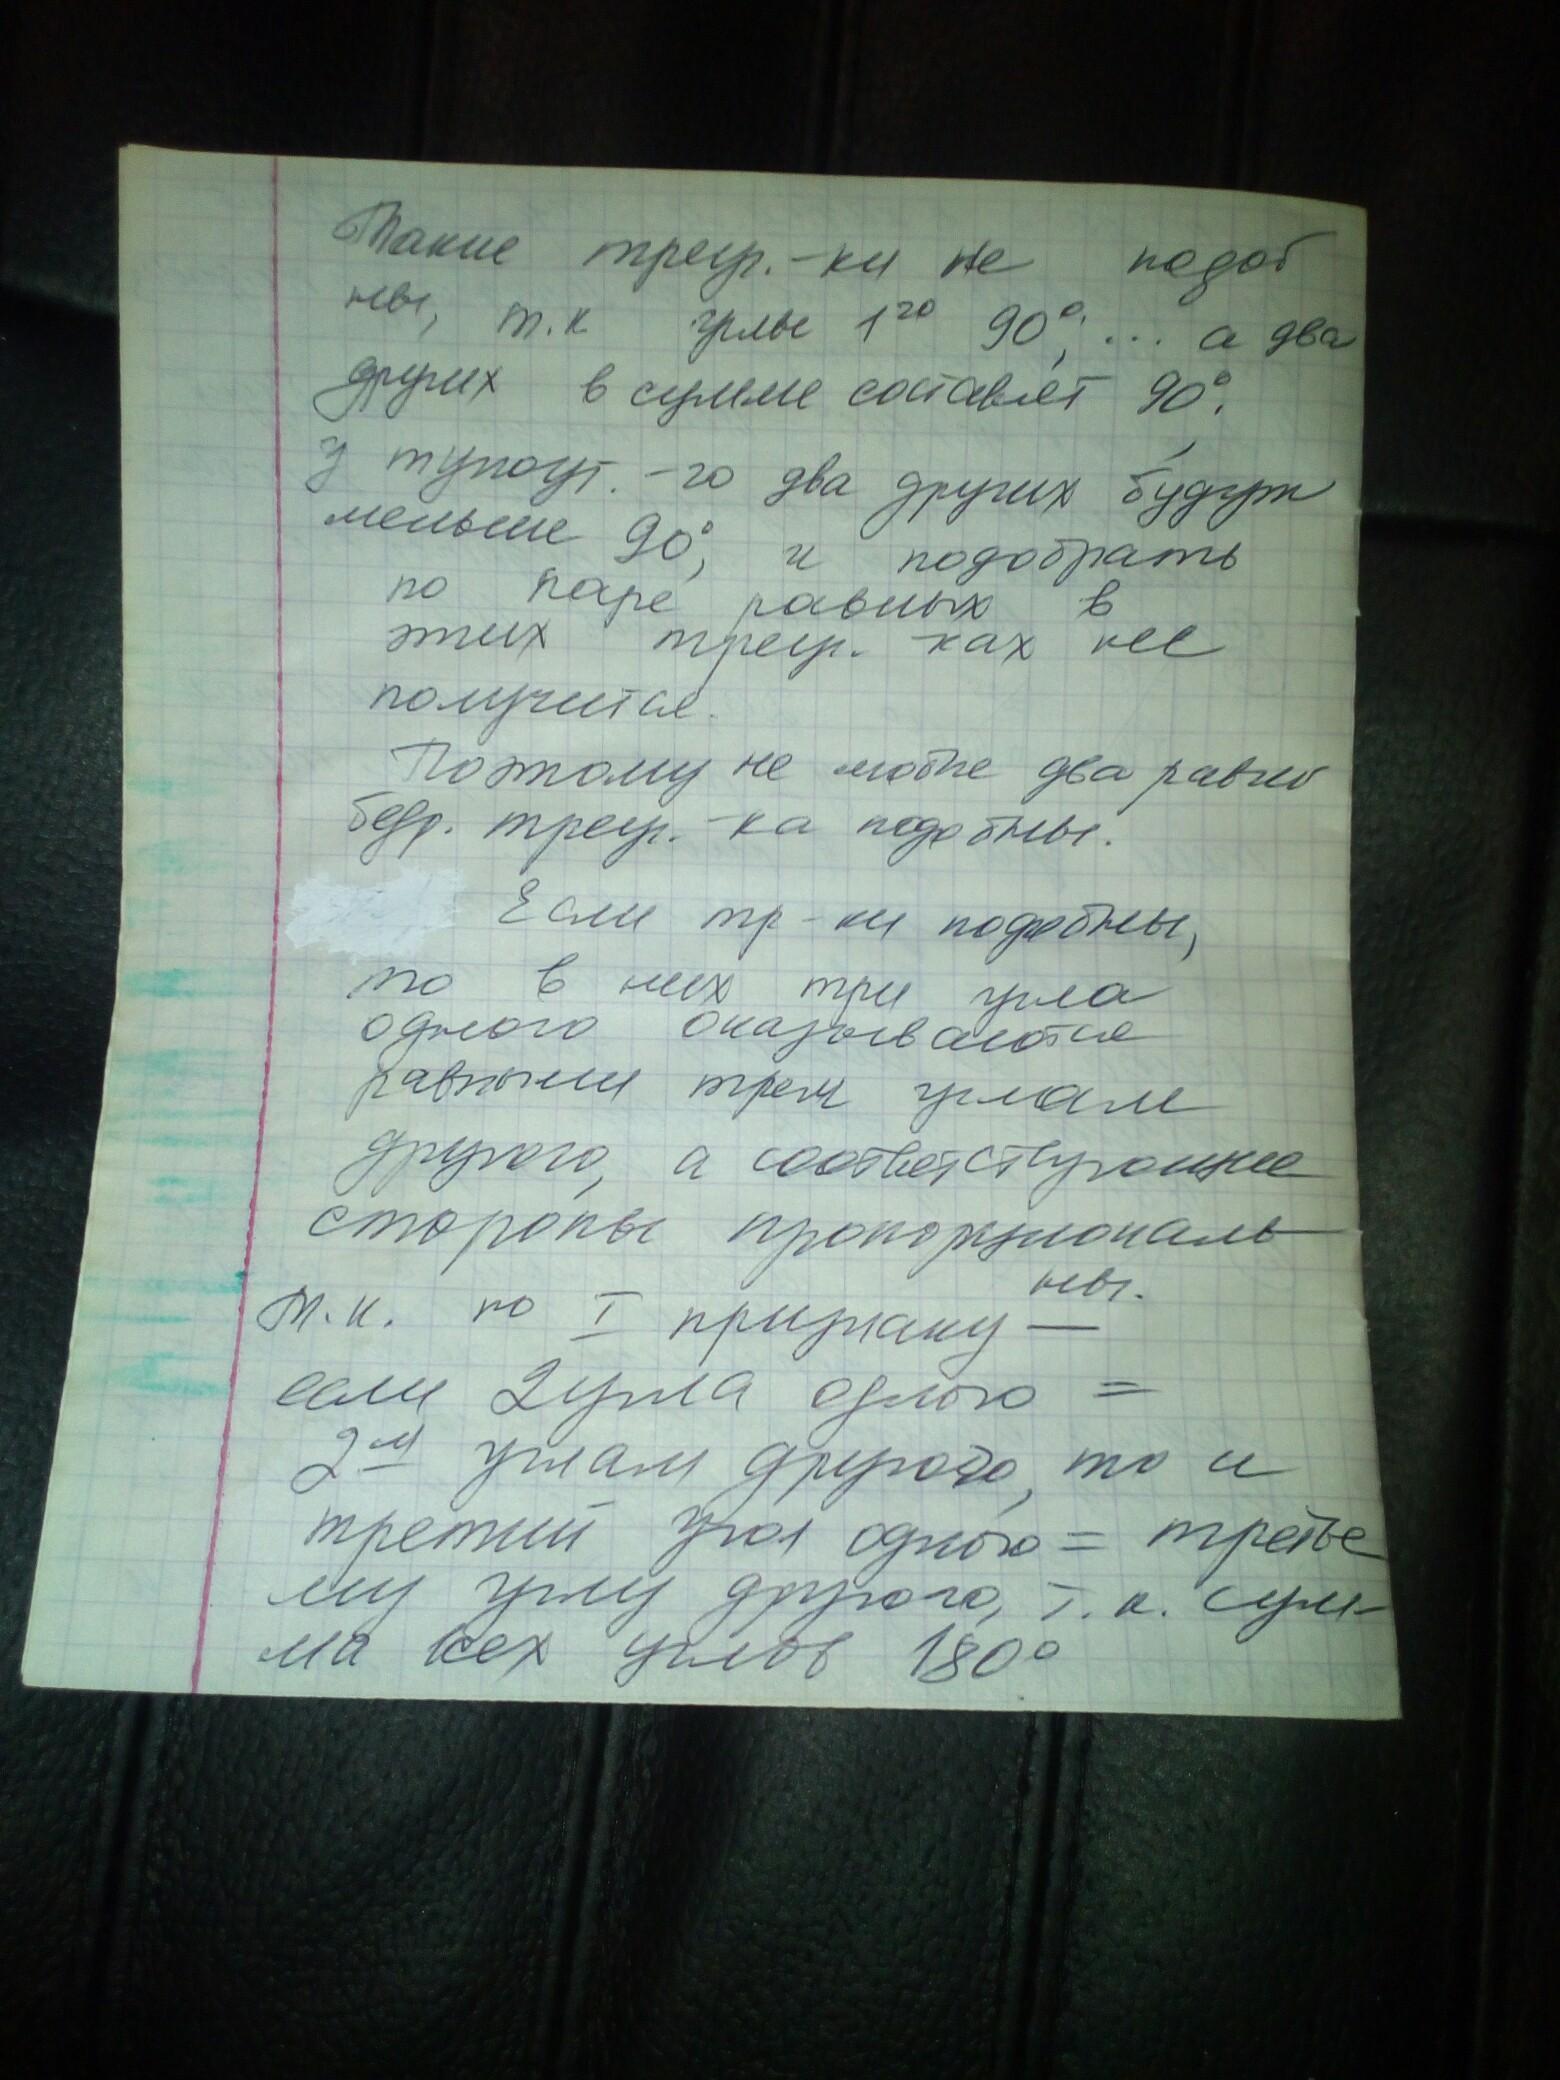 Такие треуг.-ки не подоб
ны, т.к углы 1го 90°; ... а два
других в сумме составлят 90°.
У тупоуг.-го два других будут
меньше 90°, и подобрать
по паре равных в
этих треуг.-ках не
получится.
Поэтому не любые два равно
бедр. треуг.-ка подобны.
Если тр-ки подобны,
то в них три угла
одного оказываются
равными трем углам
другого, а соответствующие
стороны пропорциональ
ны.
Т.к. по I признаку —
если 2 угла одного =
2м углам другого, то и
третий угол одного = третье
му углу другого, т.к. сум-
ма всех углов 180°